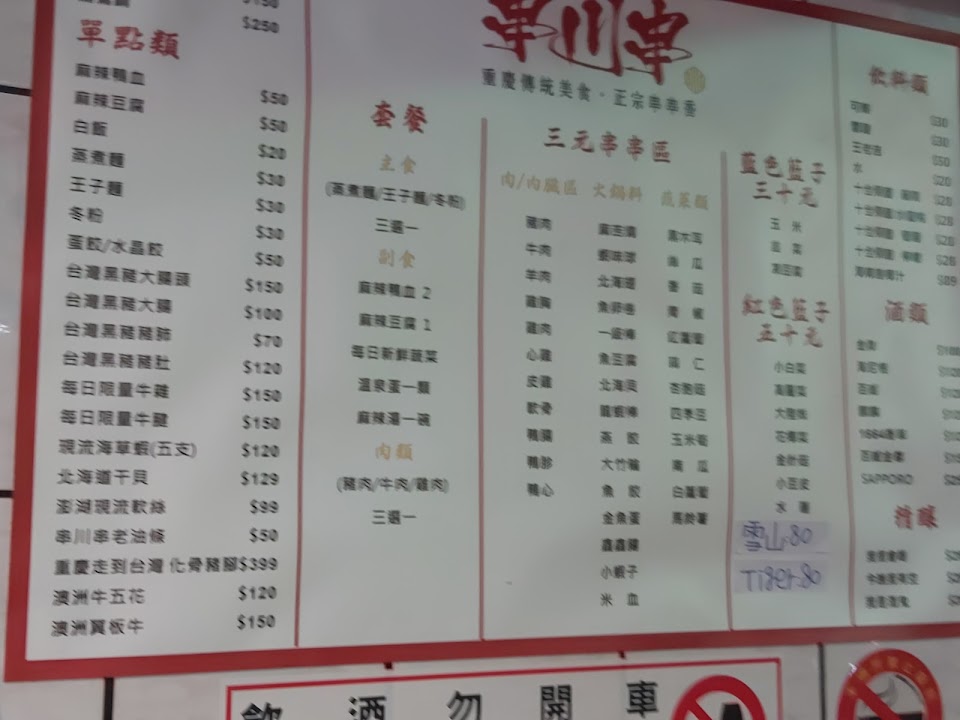 $150
$250
單點類
麻辣鴨血 $50
麻辣豆腐 $50
白飯 $20
蒸煮麵 $30
王子麵 $30
冬粉 $30
蛋餃/水晶餃 $50
台灣黑豬大腸頭 $150
台灣黑豬大腸 $100
台灣黑豬豬肺 $70
台灣黑豬豬肚 $120
每日限量牛雜 $150
每日限量牛腱 $150
現流海草蝦(五支) $120
北海道干貝 $129
澎湖現流軟絲 $99
串川串老油條 $50
重慶走到台灣 化骨豬腳$399
澳洲牛五花 $120
澳洲翼板牛 $150
套餐
主食
(蒸煮麵/王子麵/冬粉)
三選一
副食
麻辣鴨血 2
麻辣豆腐 1
每日新鮮蔬菜
溫泉蛋一顆
麻辣湯一碗
肉類
(豬肉/牛肉/雞肉)
三選一
串川串
重慶傳統美食·正宗串串香
三元串串區
肉/內臟區
豬肉
牛肉
羊肉
雞胸
雞肉
心雞
皮雞
軟骨
鴨腸
鴨胗
鴨心
火鍋料
北海翅
魚卵卷
一級棒
魚豆腐
北海貝
龍蝦棒
蒸餃
大竹輪
魚餃
金魚蛋
鑫鑫腸
小蝦子
米血
蔬菜類
黑木耳
南瓜
紅蘿蔔
杏鮑菇
四季豆
玉米筍
南瓜
白蘿蔔
馬鈴薯
藍色籃子
三十元
玉米
凍豆腐
紅色籃子
五十元
小白菜
高麗菜
大陸妹
花椰菜
金針菇
小豆皮
水蓮
雪山-80
Tiger-80
飲料類
可樂 $30
雪碧 $30
王老吉 $50
水 $20
酒類
金牌
海尼根
百威
1664啤酒
百威金尊
SAPPORO
精釀
飲酒勿開車